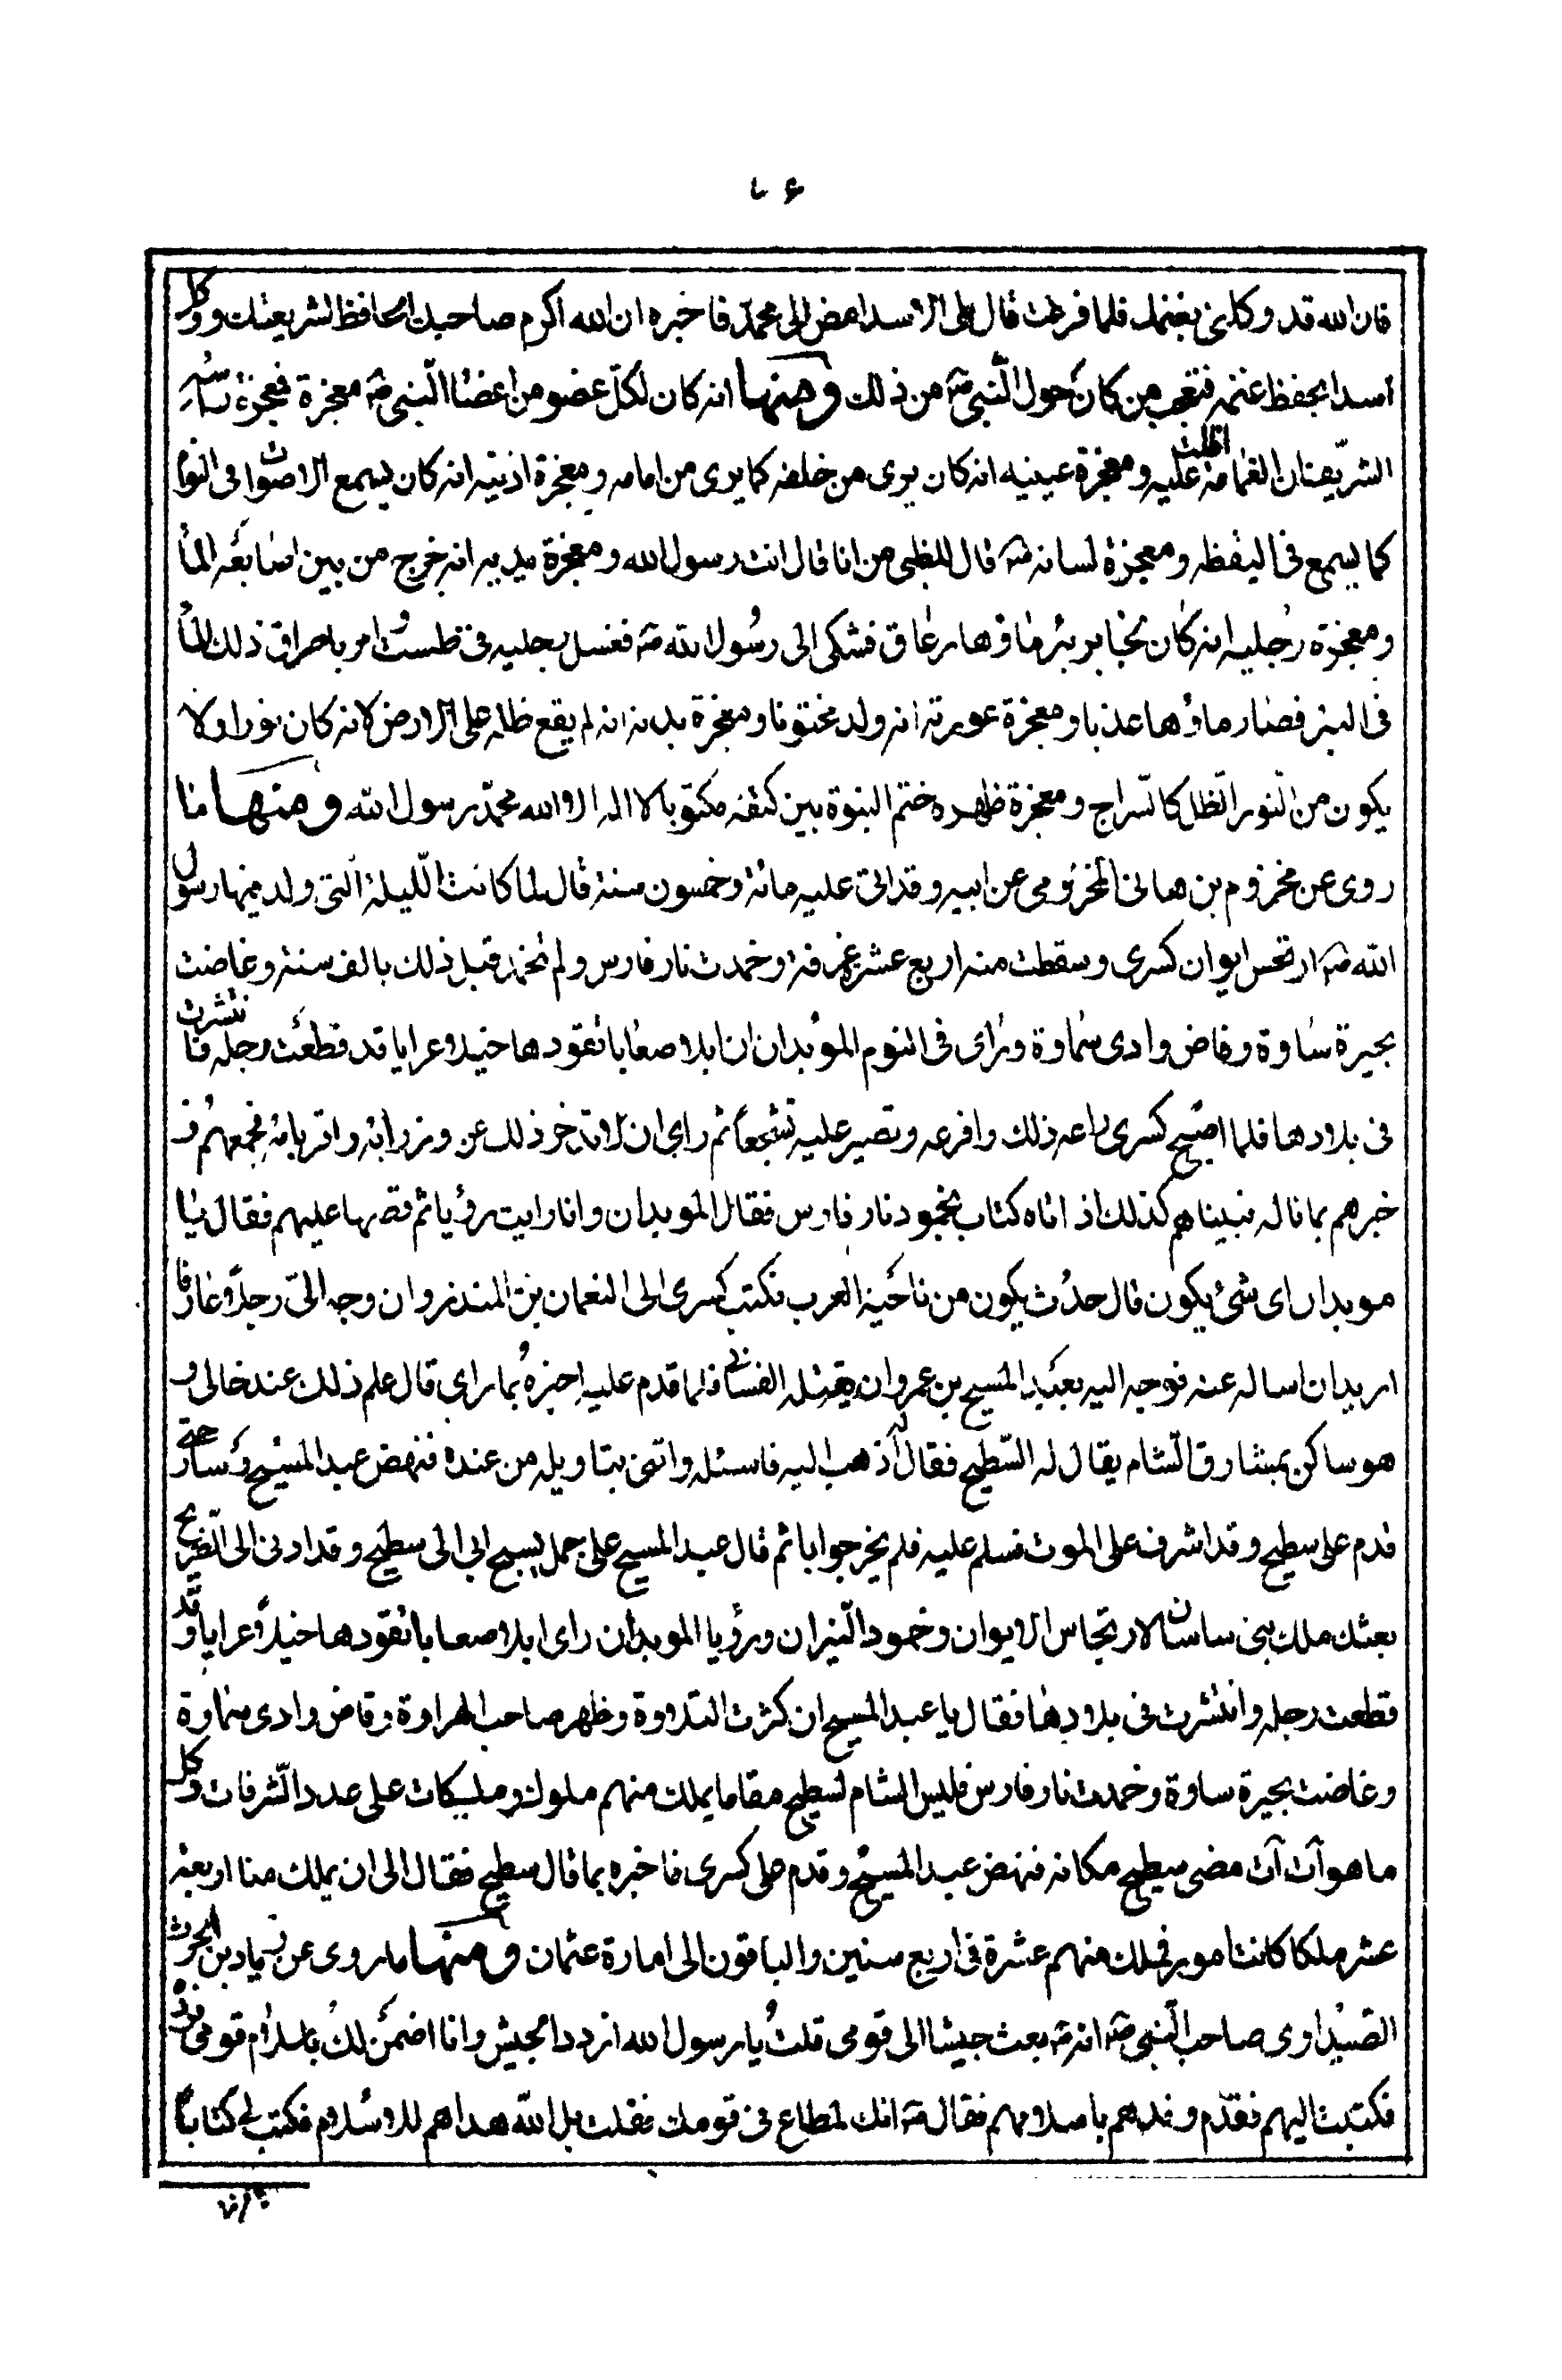 ٦
فان الله قد وكلنى بغنمك فلما فرغت قال لى الاسد امض الى محمد فاخبره ان الله اكرم صاحبك الحافظ لشريعتك ووكل
اسدا بحفظ غنمه فتعجب من كان حول النبى ص من ذلك ومنها انه كان لكل عضو من اعضا النبى ص معجزة فمعجزة راسه
الشريف ان الغمامة اظلت عليه ومعجزة عينيه انه كان يرى من خلفه كما يرى من امامه ومعجزة اذنيه انه كان يسمع الاصوات فى النوم
كما يسمع فى اليقظه ومعجزة لسانه ص قال للظبى من انا قال انت رسول الله ومعجزة يديه انه خرج من بين اصابعه الماء
ومعجزة رجليه انه كان لجابر بئر ماؤها زعاق فشكى الى رسول الله ص فغسل رجليه فى طست وامر باهراق ذلك الماء
فى البئر فصار ماؤها عذبا ومعجزة عورته انه ولد مختونا ومعجزة بدنه انه لم يقع ظله على الارض لانه كان نورا ولا
يكون من النور الظل كالسراج ومعجزة ظهره ختم النبوة بين كتفه مكتوبا لا اله الا الله محمد رسول الله ومنها ما
روى عن مخزوم بن هانى المخزومى عن ابيه وقد اتى عليه مائة وخمسون سنة قال لما كانت الليلة التى ولد فيها رسول
الله ص ارتجس ايوان كسرى وسقطت منه اربع عشر غرفة وخمدت نار فارس ولم تخمد قبل ذلك بالف سنة وغاضت
بحيرة ساوة وفاض وادى سماوة وراى فى النوم الموبدان ان ابلا صعابا تقود ها خيلا عرابا قد قطعت دجله فانتشرت
فى بلادها فلما اصبح كسرى راعه ذلك وافزعه وتصبر عليه تشجعا ثم راى ان لا يدخر ذلك عن وزرائه واقربائه فجمعهم و
خبرهم بما قاله فبيناهم كذلك اذ اتاه كتاب بخمود نار فارس فقال الموبدان وانا رايت رؤيا ثم قصها عليهم فقال يا
موبدان اى شئ يكون قال حدث يكون من ناحية العرب فكتب كسرى الى النعمان بن المنذر وان وجه الى رجلا عارفا
اريد ان اساله عنه فوجه اليه بعبد المسيح بن عمرو ان نفيله الغسانى فلما قدم عليه اخبره بما راى قال علم ذلك عند خالى و
هو ساكن بمشارق الشام يقال له السطيح فقال له اذهب اليه فاسئله واتنى بتاويله من عنده فنهض عبد المسيح وسار حتى
قدم على سطيح وقد اشرف على الموت فسلم عليه فلم يخر جوابا ثم قال عبد المسيح على جمل يسيح اتى الى سطيح وقد ادنى الى الضريح
بعثك ملك بنى ساسان لارتجاس الايوان وخمود النيران ورؤيا الموبدان راى ابلا صعابا تقود ها خيلا عرابا وقد
قطعت دجله وانتشرت فى بلادها فقال يا عبد المسيح ان كثرت التلاوة وظهر صاحب الهراوة وفاض وادى سماوة
وغاضت بحيرة ساوة وخمدت نار فارس فليس الشام لسطيح مقاما يملك منهم ملوك ومليكات على عدد الشرفات وكل
ما هو آت آت مضى سطيح مكانه فنهض عبد المسيح وقدم على كسرى فاخبره بما قال سطيح فقال الى ان يملك منا اربعة
عشر ملكا كانت امور فملك منهم عشرة فى اربع سنين والباقون الى امارة عثمان ومنها ما روى عن زياد بن الحرث
الصيداوى صاحب النبى ص انه ص بعث جيشا الى قومى قلت يا رسول الله ازدد الجيش وانا اضمن لك باسلام قومى
فكتبت اليهم فقدم وفدهم باسلامهم فقال ص انك لمطاع فى قومك فقلت بل الله هداهم للاسلام فكتب لى كتابا